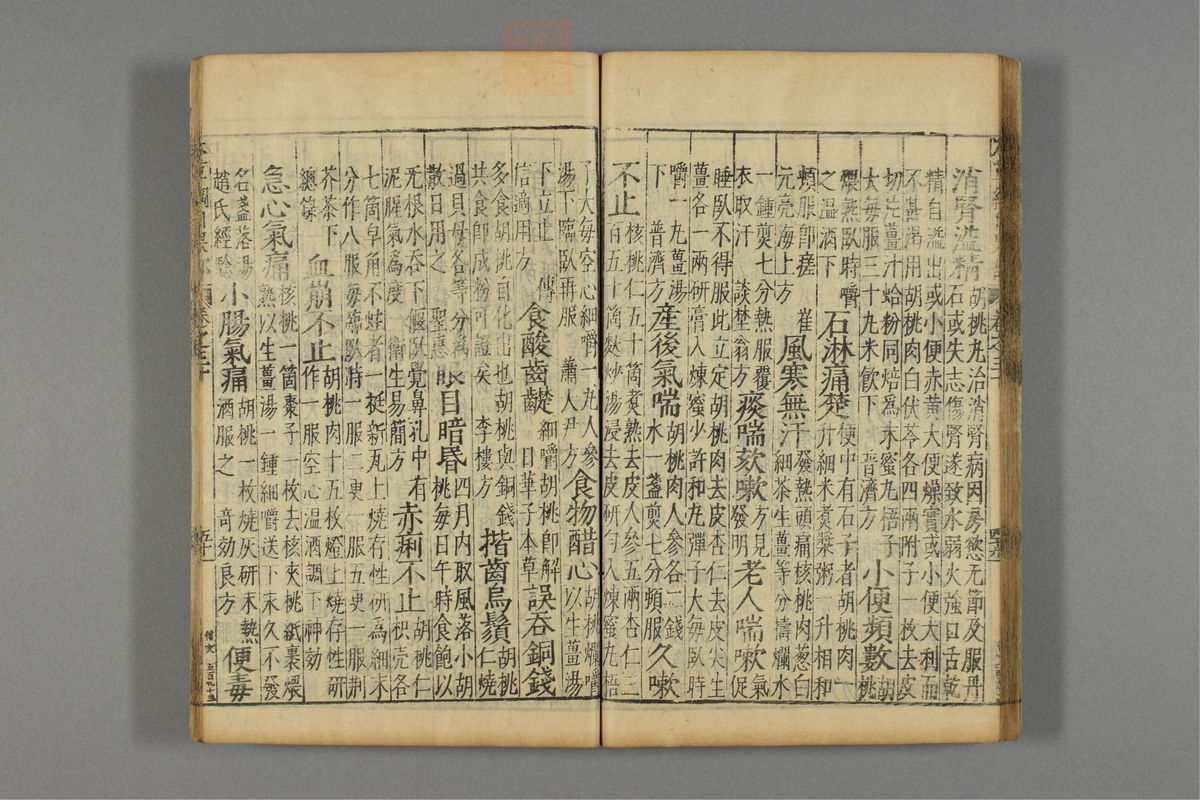 消腎溢精
胡桃丸治消腎病因房慾无節及服丹
石或失志傷腎遂致水弱火強口舌乾
精自溢出或小便赤黃大便燥實或小便大利而
不甚渴用胡桃肉白伏苓各四兩附子一枚去皮
切片薑汁蛤粉同焙為末蜜丸梧子
大每服三十丸米飲下 普濟方
小便頻數
胡
桃
煨熟臥時嚼
之溫酒下
石淋痛楚
便中有石子者胡桃肉一
升細米煮漿粥一升相和
頓服即瘥 崔
元亮海上方
風寒無汗
發熱頭痛核桃肉葱白
細茶生薑等分擣爛水
一鍾煎七分熱服覆
衣取汗 談埜翁方
痰喘欬嗽
方見
發明
老人喘嗽
氣
促
睡臥不得服此立定胡桃肉去皮杏仁去皮尖生
薑各一兩研膏入煉蜜少許和丸彈子大每臥時
嚼一丸薑湯
下 普濟方
產後氣喘
胡桃肉人參各二錢
水一盞煎七分頓服
久嗽
不止
核桃仁五十箇煮熟去皮人參五兩杏仁三
百五十箇麩炒湯浸去皮研勻入煉蜜丸梧
子大每空心細嚼一丸人參
湯下臨臥再服 蕭大尹方
食物醋心
胡桃爛嚼
以生薑湯
下立止 傳
信適用方
食酸齒齼
細嚼胡桃即解
日華子本草
誤吞銅錢
多食胡桃自化出也胡桃與銅錢
共食即成粉可證矣 李樓方
揩齒烏鬚
胡桃
仁燒
過貝母各等分為
散日用之 聖惠
眼目暗昏
四月內取風落小胡
桃每日午時食飽以
无根水吞下偃臥覺鼻孔中有
泥腥氣為度 衛生易簡方
赤痢不止
胡桃仁
枳壳各
七箇皁角不蛀者一挺新瓦上燒存性研為細末
分作八服每臨臥時一服二更一服五更一服荆
芥茶下
總錄
血崩不止
胡桃肉十五枚燈上燒存性研
作一服空心溫酒調下神効
急心氣痛
核桃一箇棗子一枚去核夾桃紙裹煨
熟以生薑湯一鍾細嚼送下末久不發
名盞落湯
趙氏經驗
小腸氣痛
胡桃一枚燒灰研末熱
酒服之 奇効良方
便毒